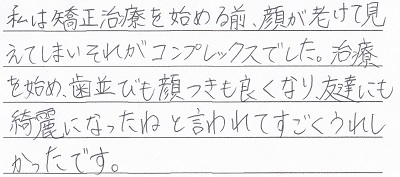 私は矯正治療を始める前、顔が老けて見
えてしまいそれがコンプレックスでした。治療
を始め、歯並びも顔つきも良くなり、友達にも
綺麗になったねと言われてすごくうれし
かったです。